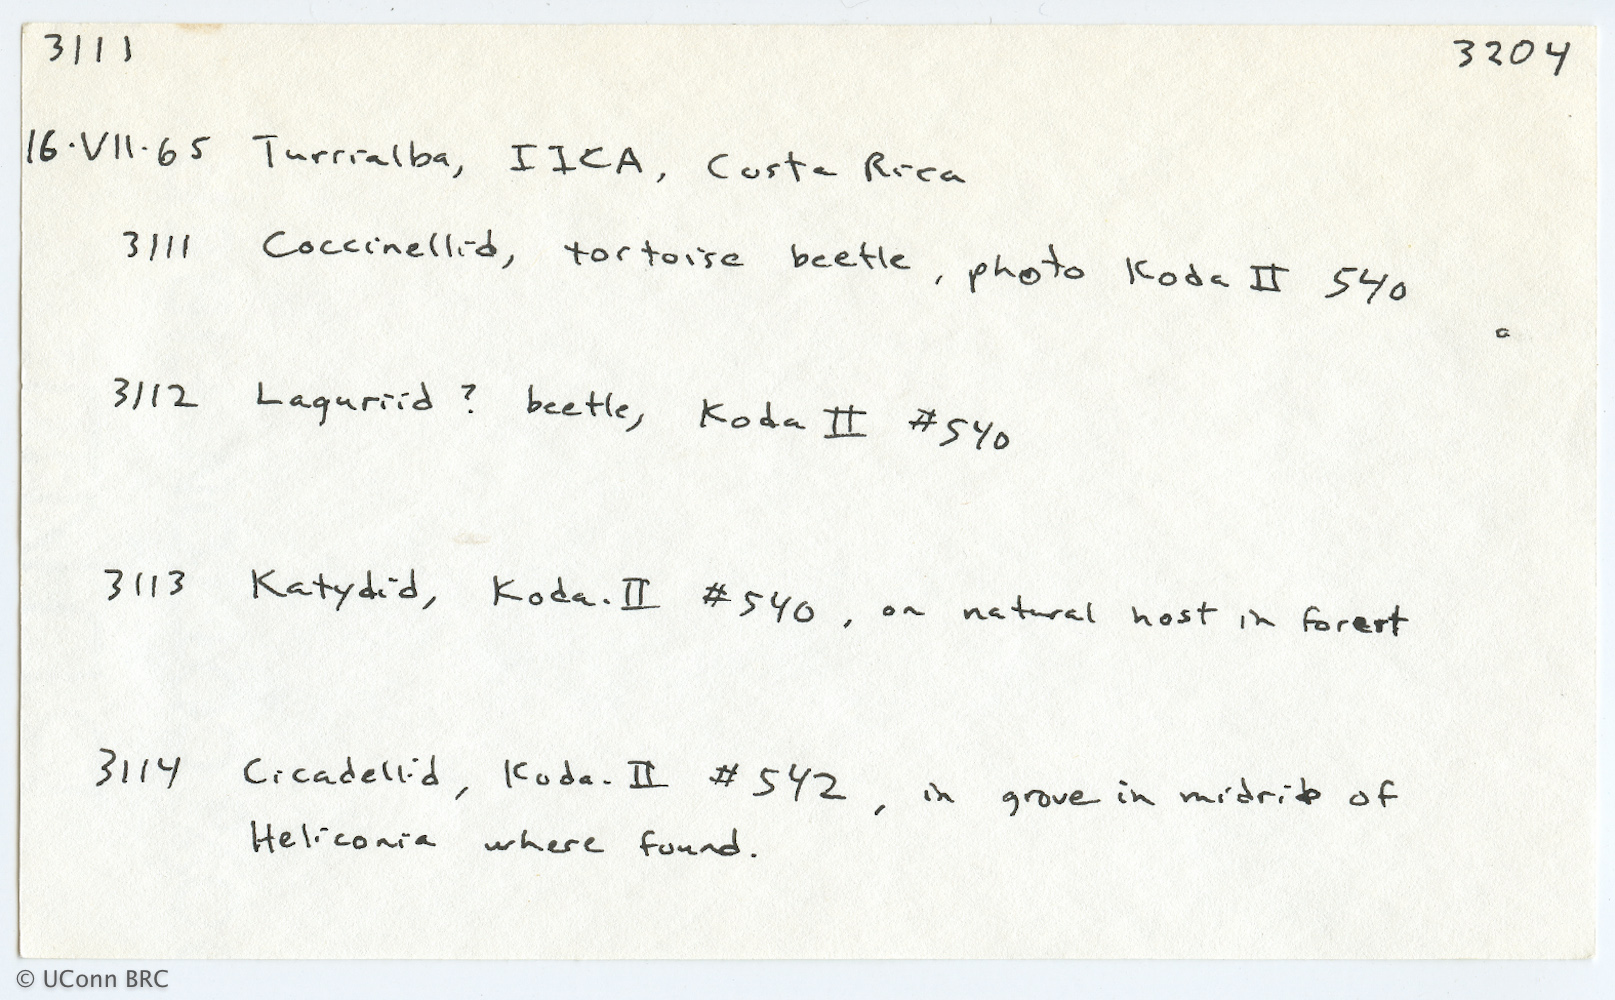 3111 3204
16·VII·65 Turrialba, IICA, Costa Rica
3111 Coccinellid, tortoise beetle, photo Koda II 540
a
3112 Laguriid ? beetle, Koda II #540
3113 Katydid, Koda. II #540, on natural host in forest
3114 Cicadellid, Koda. II #542, in grove in midrib of
Heliconia where found.
© UConn BRC